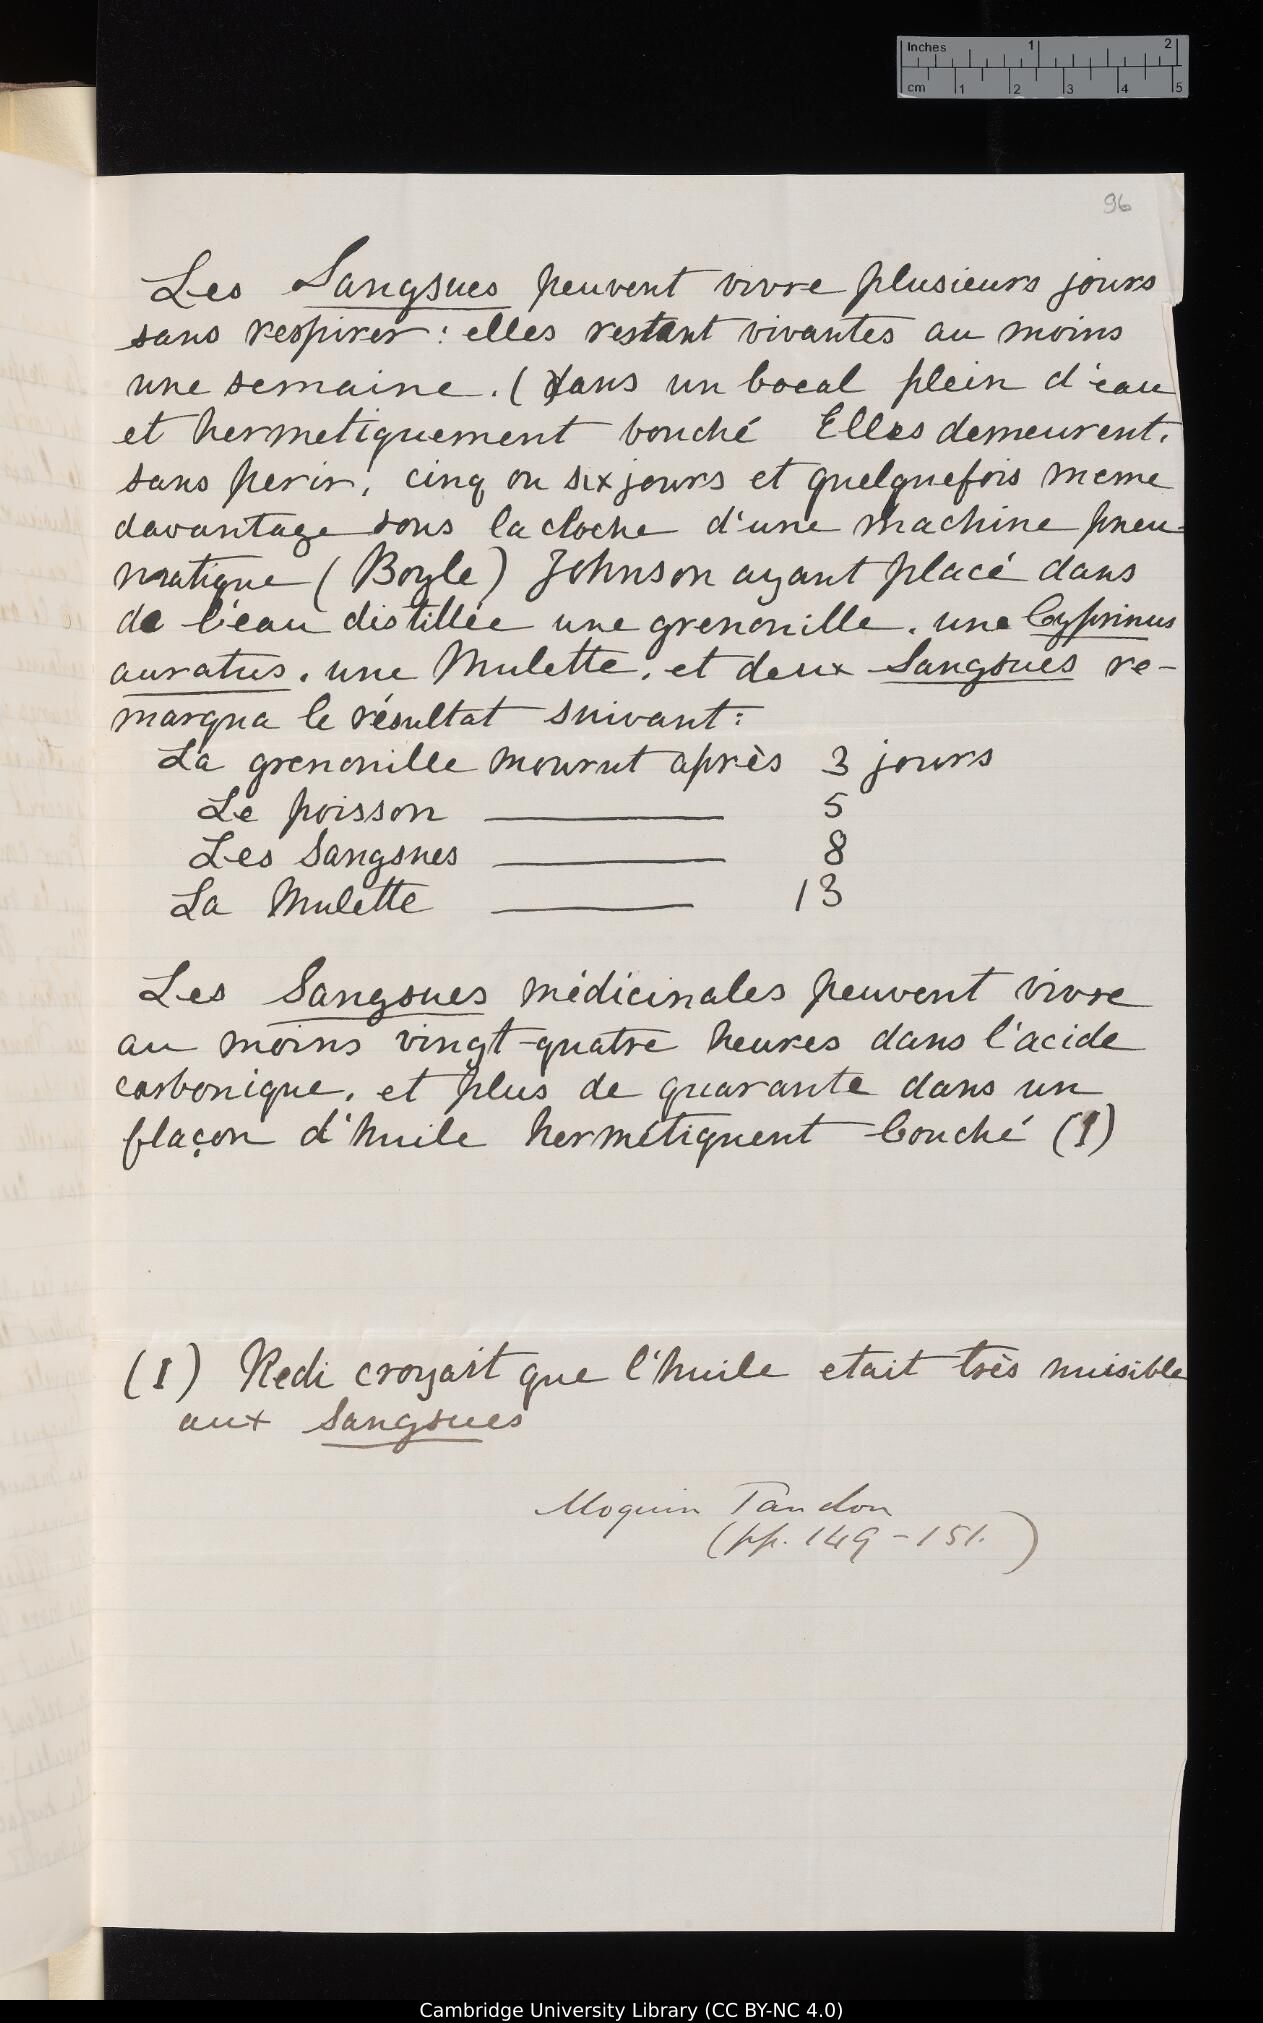 Inches 1 2
cm 1 2 3 4 5
96
Les Sangsues peuvent vivre plusieurs jours
sans respirer : elles restent vivantes au moins
une semaine . ( dans un bocal plein d'eau
et hermetiquement bouché Elles demeurent,
sans perir, cinq ou six jours et quelquefois meme
davantage sous la cloche d'une machine pneu-
matique ( Boyle ) Johnson ayant placé dans
de l'eau distillée une grenouille, une Cyprinus
auratus, une Mulette, et deux Sangsues re-
marqua le résultat suivant :
La grenouille mourut après 3 jours
Le poisson ——— 5
Les Sangsues ——— 8
La Mulette ——— 13
Les Sangsues médicinales peuvent vivre
au moins vingt-quatre heures dans l'acide
carbonique, et plus de quarante dans un
flaçon d'huile hermétiquent bouché (1)
(1) Redi croyait que l'huile etait très nuisible
aux Sangsues
Moquin Tandon
(pp. 149-151.)
Cambridge University Library (CC BY-NC 4.0)